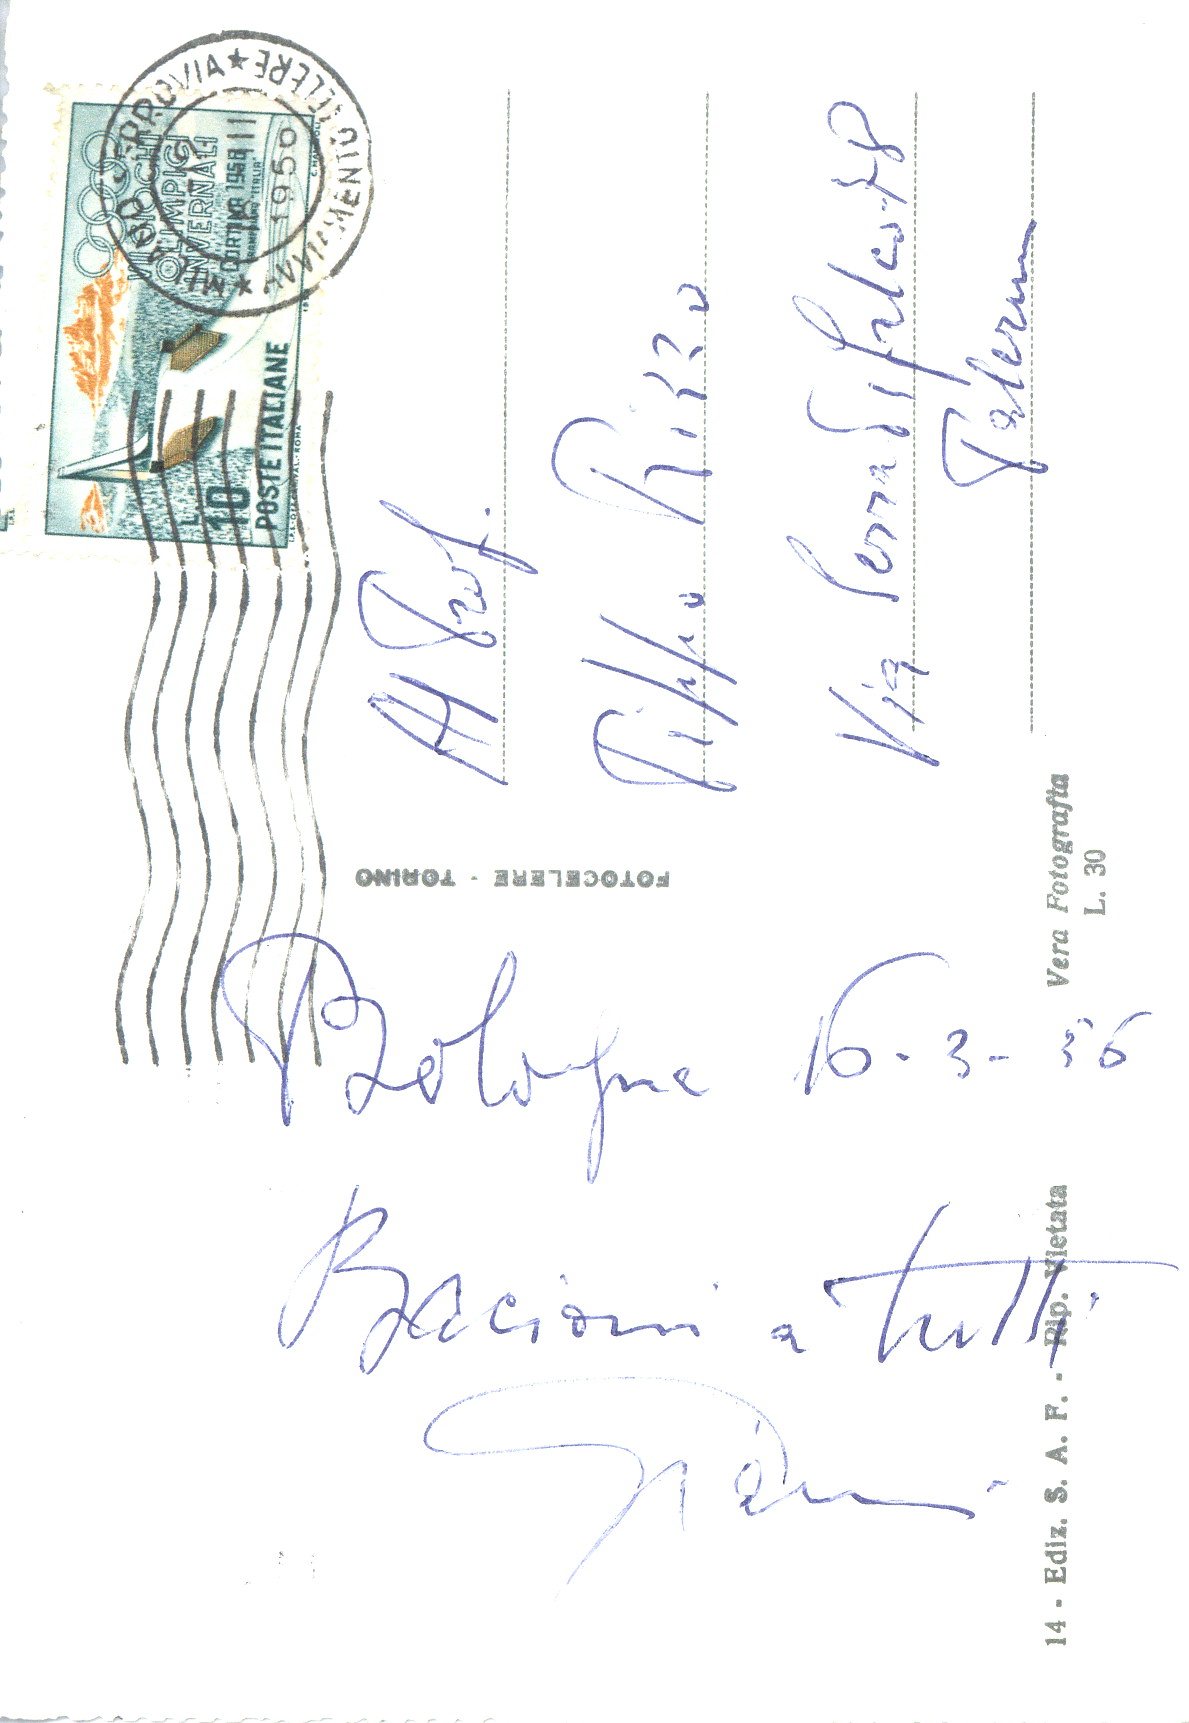 Bologna 16-3-56
Bacioni a tutti
Gianni
14 - Ediz. S. A. F. - Rip. Vietata
Vera Fotografia
L. 30
FOTOCELERE - TORINO
Al Prof.
Pippo Rizzo
Via Serradifalco 78
Palermo
VII GIOCHI
OLIMPICI
INVERNALI
CORTINA 1956
TRAMPOLINO "ITALIA"
L. 10
POSTE ITALIANE
MILANO FERROVIA
1956